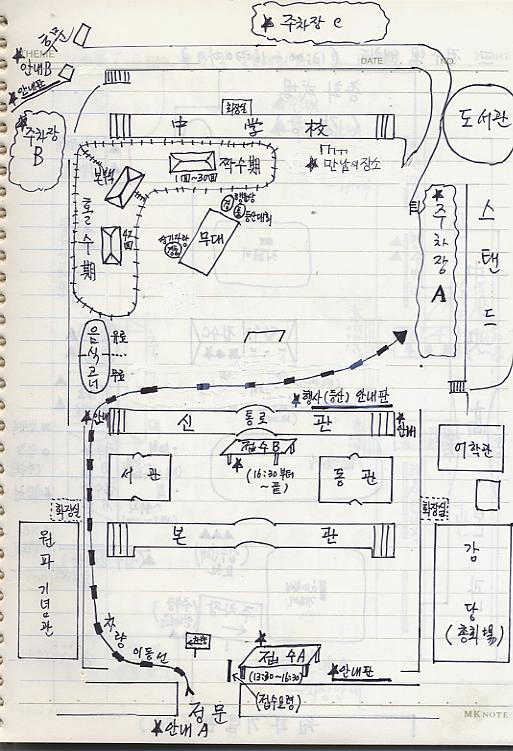 주차장 C
후문
THEME
DATE
NO.
안내B
안내판
주차장
B
화장실
中 学 校
도서관
만남의 장소
짝수期
1回~30回
본부
홀수期
무대
등산대회
주차장 A
스탠드
음식코너
유료
무료
행사(등산) 안내판
안내
신 통로 관
안내
접수B
(16:30부터
~끝)
서 관
동 관
어학관
화장실
화장실
본 관
원파기념관
강당
(총회場)
차량
이동선
접수A
(13:30~16:30)
안내판
(접수요령)
정문
안내A
MK NOTE